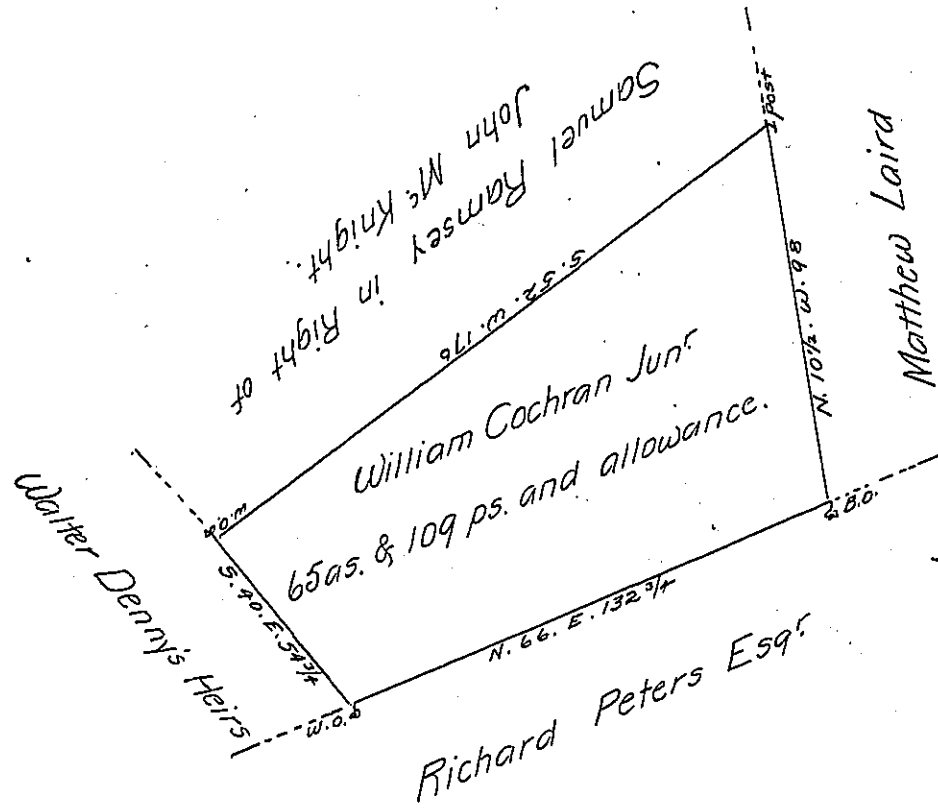 Samuel Ramsey in Right of
John Mc Knight.
post
Matthew Laird
S. 52. W. 176
N. 10½. W. 98
William Cochran Junr.
65as. & 109 ps. and allowance.
W.O.
Walter Denny's Heirs
S. 40. E. 54 3/4
N. 66. E. 132 3/4
B.O.
W.O.
Richard Peters Esqr.